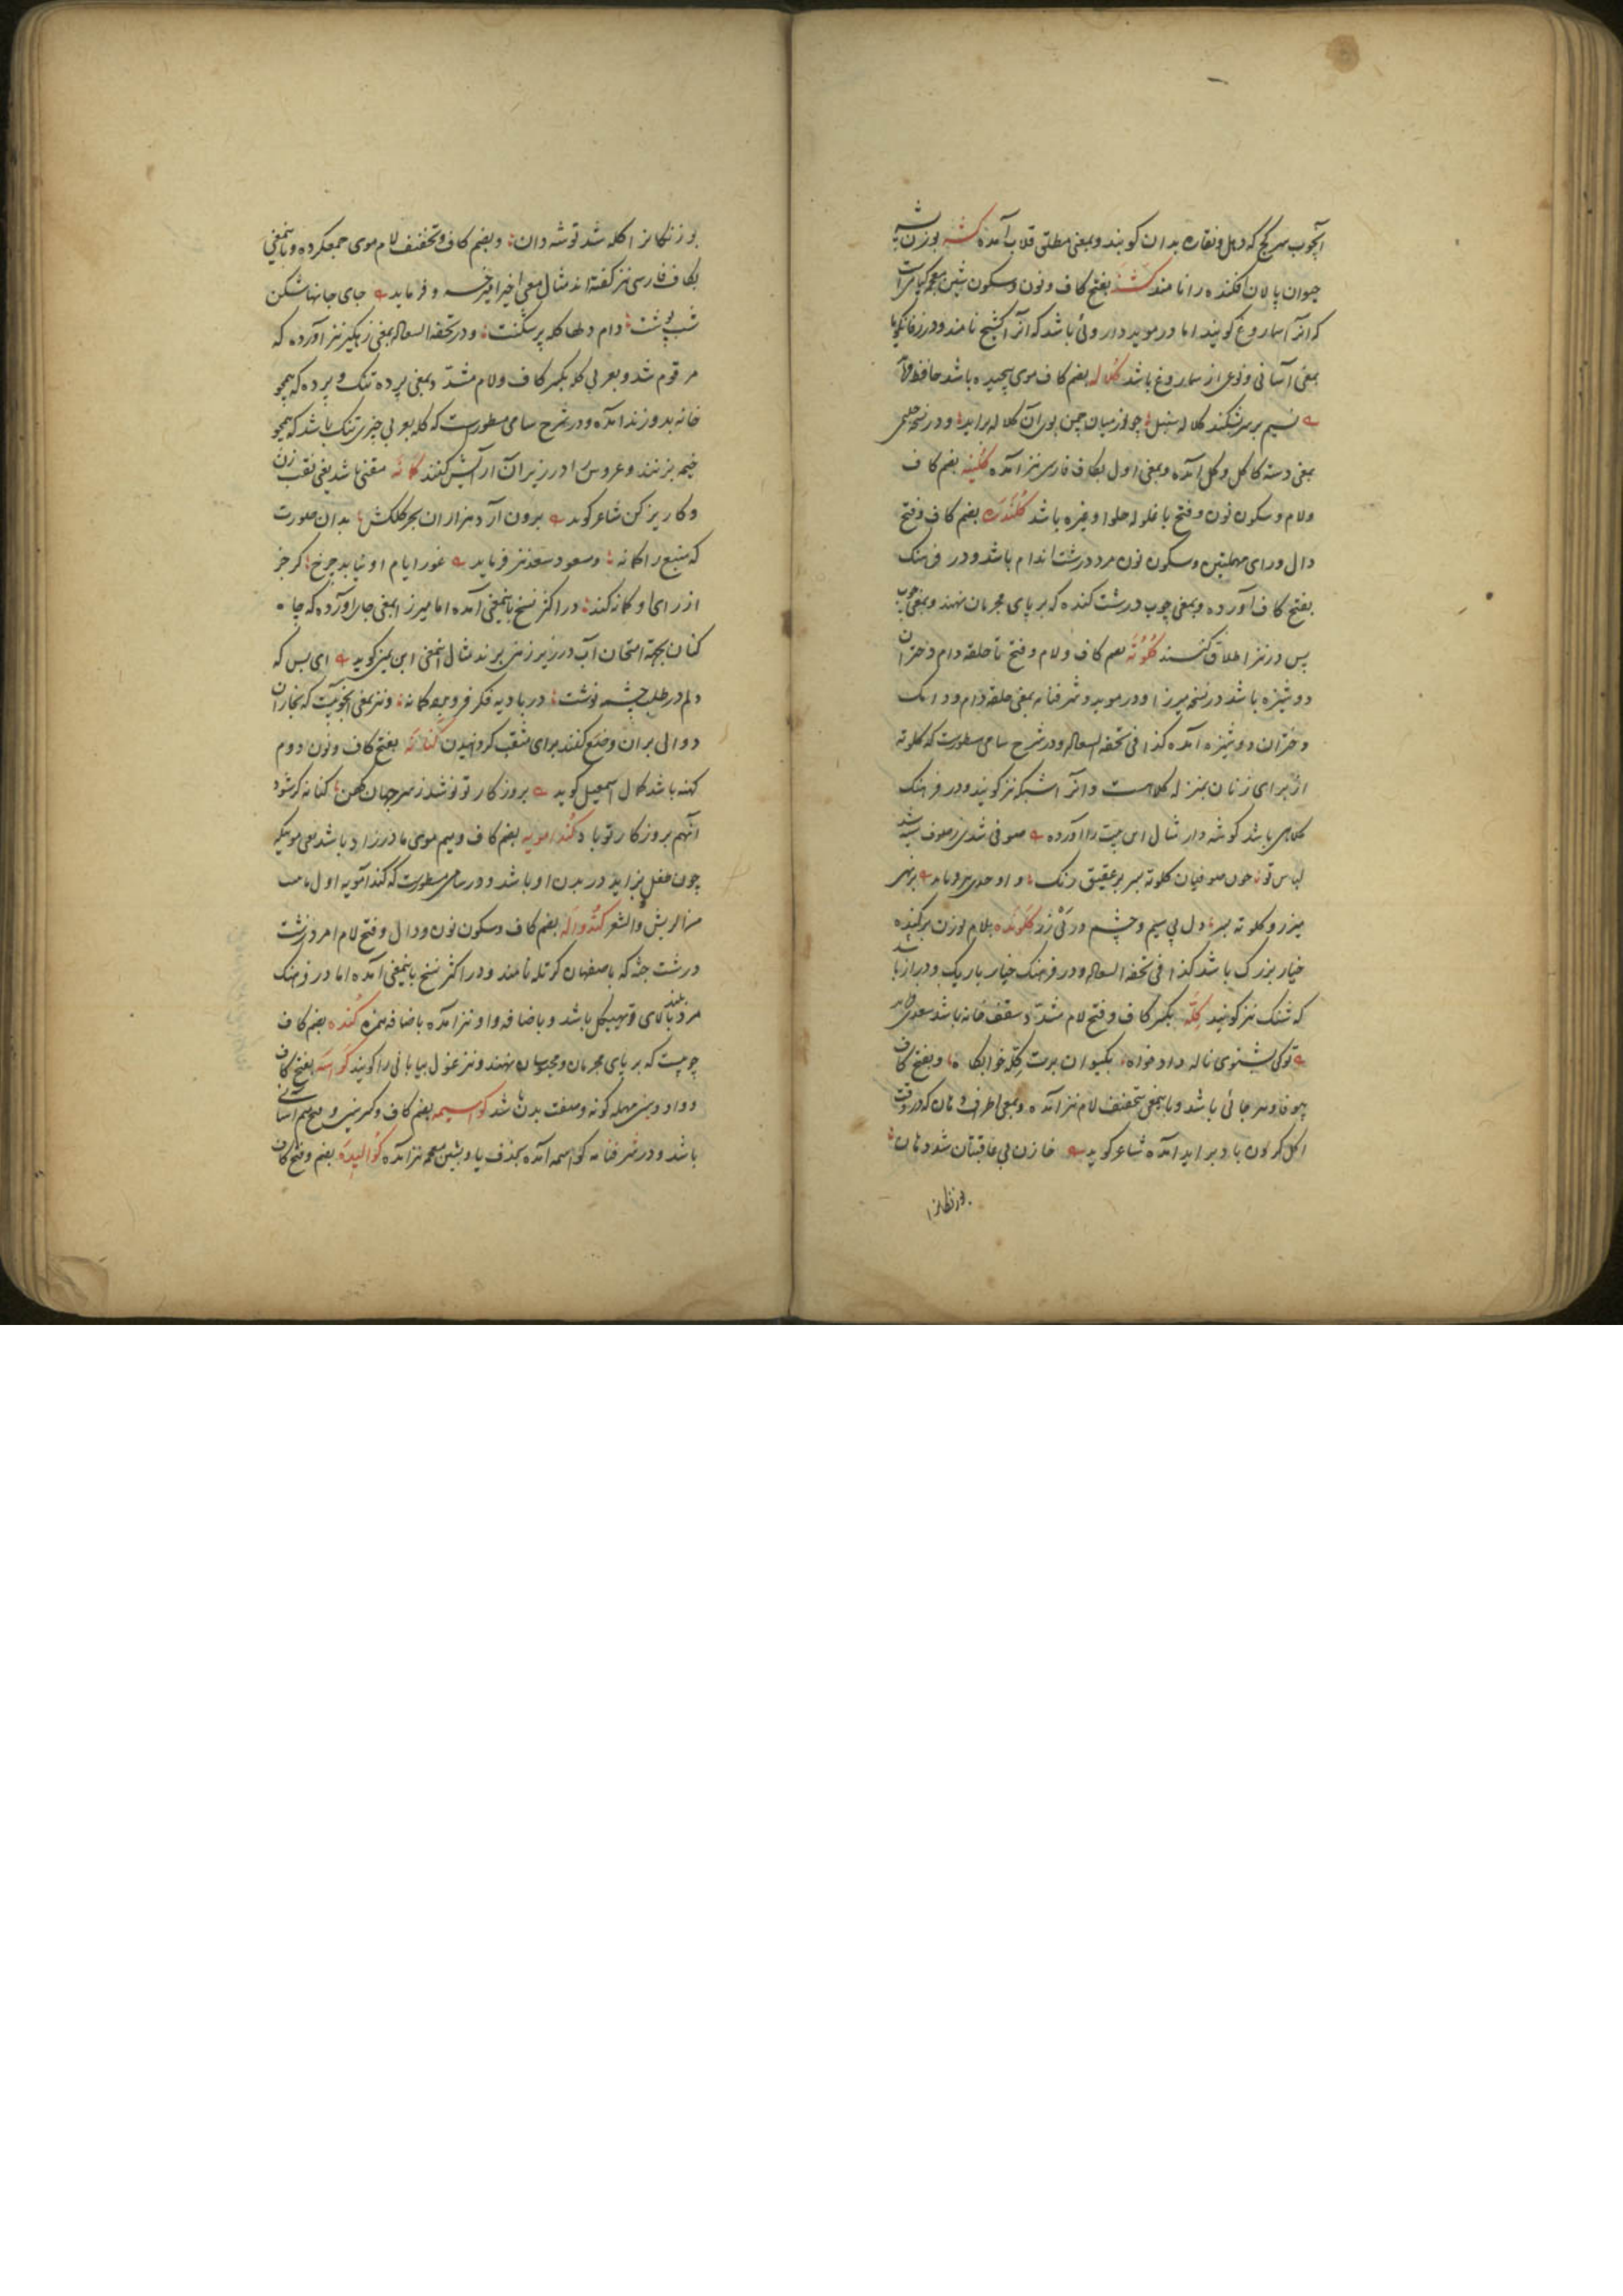 آنچوب سر کج که دهل و نقاره بدان کوبند و بمعنی مطلق قلاب آمده کشه بوزن
حیوان پالان افکنده را نامند بفتح کاف و نون و سکون شین معجمه
که آنرا سماروغ گویند اما در موید داروئی باشد که آنرا کشنج نامند و در
بمعنی آسانی و نوعی از سماروغ باشد کلاله بضم کاف موی پیچیده باشد حافظ
نسیم بر سر شکند کلاله سنبل چو از میان چمن بوی آن کلاله براید و در نسخه حلیمی
بمعنی دسته کاکل و کل آمده و بمعنی اول بکاف فارسی نیز آمده بضم کاف
ولام و سکون نون و فتح با غلوله حلوا و غیره باشد کلندره بضم کاف و فتح
دال و رای مهملتین و سکون نون مرد درشت اندام باشد و در فرهنک
بفتح کاف آورده و بمعنی چوب درشت کنده که بر پای مجرمان نهند و بمعنی چوب
پس در نیز اطلاق کنند کلوته بضم کاف و لام و فتح تا حلقه دام و دختران
دوشیزه باشد در نسخه میرزا و در موید و شرفنامه بمعنی حلقه دام و
دختران دوشیزه آمده کذا فی تحفه السعاده و در شرح سامی مسطورست که کلوته
از برای زنان بمنزله کلاهست و آنرا شبکه نیز گویند و در فرهنک
کلاهی باشد گوشه دار مثال این بیت را آورده صوفی شدی ز صوف سیه شد
لباس تو چون صوفیان کلوته بسر بر عقیق رنک و اوحدی
میزر و کلوته دل بی سیم و چشم در پی زر کلونده بلام بوزن
خیار بزرک باشد کذا فی تحفه السعاده و در فرهنک خیار باریک و دراز باشد
که شنک نیز گویند کله بکسر کاف و فتح لام مشدد سقف خانه باشد سعدی
تو کی بشنوی ناله دادخواه بکیوان برت کله خوابکاه و بفتح کاف
و باینمعنی بتخفیف لام نیز آمده و بمعنی اطراف دهان که در وقت
براید آمده شاعر گوید خازن بی عاقبتان شد دهان
بوزنکانرا کله شد توشه دان و بضم کاف و تخفیف لام موی جمع کرده و باینمعنی
بکاف فارسی نیز گفته اند مثال معنی اخیر امیر خسرو فرماید جای جانها شکن
شب پوشت دام دلها کله پر شکنت و در تحفه السعاده بمعنی زهگیر نیز آورده که
مرقوم شد و بعربی کله بکسر کاف و لام مشدد بمعنی پرده تنک و پرده که همچو
خانه بدوزند آمده و در شرح سامی مسطورست که کله بعربی چیزی تنک باشد که همچو
خیمه بزنند و عروس را در زیر آن آرایش کنند کانه مقنی باشد یعنی نقب زن
و کاریز کن شاعر گوید برون آرد هزاران بحر کلکش بدان صورت
که منبع را کانه و مسعود سعد نیز فرماید غور ایام او نیابد چرخ کر جز
از رای او کانه کند در اکثر نسخ باینمعنی آمده اما میرزا بمعنی جا را آورده که چاه
کنان بجهة امتحان آب در زیر زمین برند مثال اینمعنی ابن یمین گوید ای بس که
دلم در طلب چشمه نوشت در بادیه فکر فرو برد کانه و نیز بمعنی آنچوبیست که نجاران
دوالی بران وضع کنند برای مثقب گردانیدن کنانه بفتح کاف و نون دوم
کهنه باشد کمال اسمعیل گوید بروزکار تو نو شد ز سر جهان کهن کنانه کر شود
آنهم بروزکار تو باد کندامویه بضم کاف و میم موی مادرزاد باشد یعنی موئیکه
چون طفل بزاید در بدن او باشد و در سامی مسطورست که کندامویه اول ما
من الریش و الشعر کندواله بضم کاف و سکون نون و دال و فتح لام امرد زشت
درشت جثه که باصفهان کرتله نامند و در اکثر نسخ باینمعنی آمده اما در فرهنک
مرد بلند بالای قوی هیکل باشد و باضافه واو نیز آمده باضافه همزه کنده بضم کاف
چوبیست که بر پای مجرمان و محبوسان نهند و نیز غول بیابانی را گویند کواسه بفتح کاف
و واو و سین مهمله گونه و صفت بدن باشد کواسیمه بضم کاف و کسر سین و فتح میم آسانی
باشد و در شرفنامه کواسمه آمده بحذف یا و بشین معجمه نیز آمده کوالیده بضم و فتح کاف